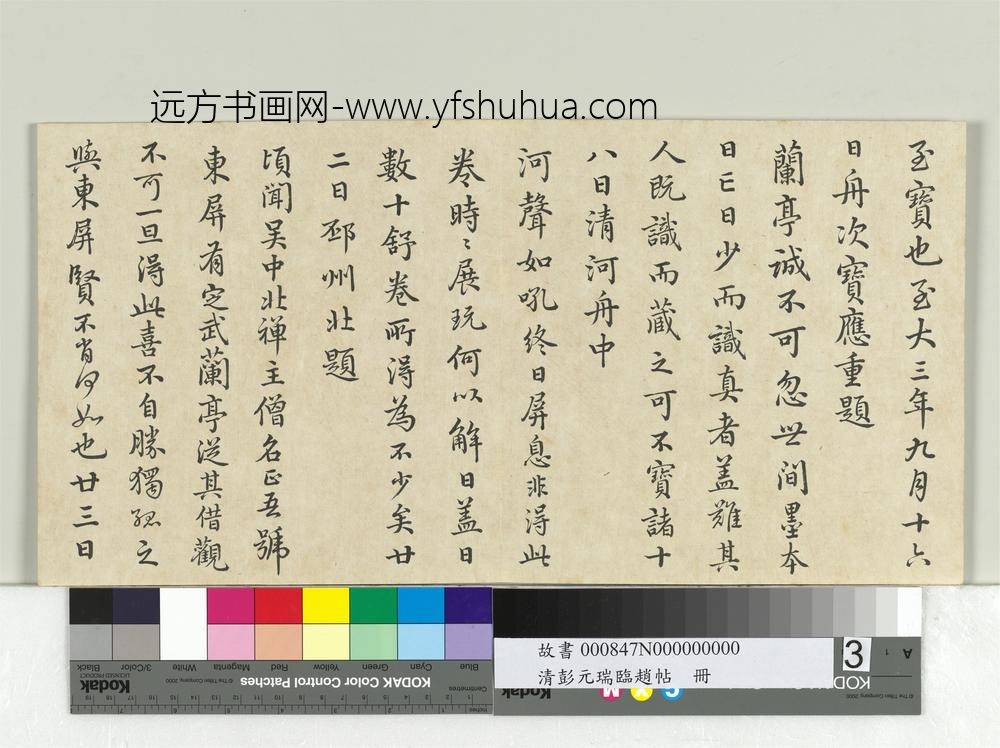 远方书画网-www.yfshuhua.com
至寶也至大三年九月十六
日舟次寶應重題
蘭亭誠不可忽世間墨本
日亡日少而識真者盖難其
人既識而藏之可不寶諸十
八日清河舟中
河聲如吼終日屏息非得此
卷時〻展玩何以解日盖日
數十舒卷所得為不少矣廿
二日邳州北題
頃聞吴中北禅主僧名正吾號
東屏有定武蘭亭從其借觀
不可一旦得此喜不自勝獨孤之
與東屏賢不肖何如也廿三日
Blue Cyan Green Yellow Red Magenta White 3/Color Black
KODAK Color Control Patches
© The Tiffen Company, 2000
Kodak
LICENSED PRODUCT
Centimetres
Inches
故書 000847N000000000
清彭元瑞臨趙帖 冊
3
A 1
M Y C